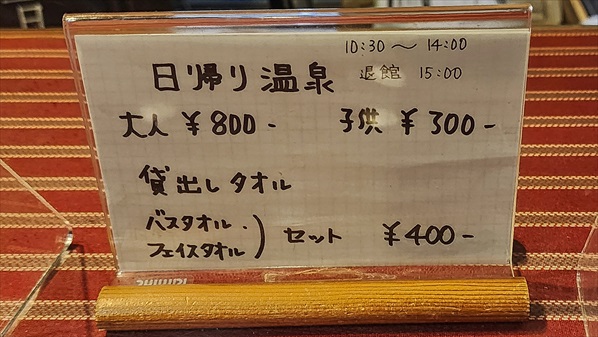 10:30〜14:00
日帰り温泉 退館 15:00
大人 ¥800- 子供 ¥300-
貸出しタオル
バスタオル・
フェイスタオル ) セット ¥400-